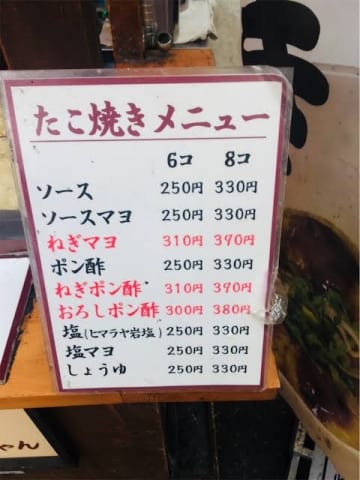 たこ焼きメニュー
6コ 8コ
ソース 250円 330円
ソースマヨ 250円 330円
ねぎマヨ 310円 390円
ポン酢 250円 330円
ねぎポン酢 310円 390円
おろしポン酢 300円 380円
塩(ヒマラヤ岩塩) 250円 330円
塩マヨ 250円 330円
しょうゆ 250円 330円
ちゃん